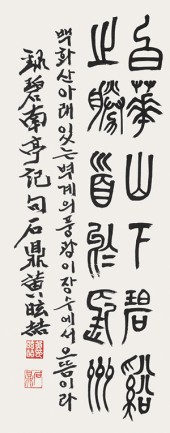 白華山下碧谿
之勝首於長水
백화산아래있는벽계의풍광이장수에서으뜸이라
碧南亭記句石鼎黃